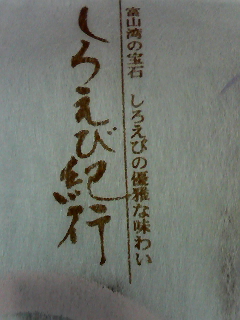 富山湾の宝石 しろえびの優雅な味わい
しろえび紀行